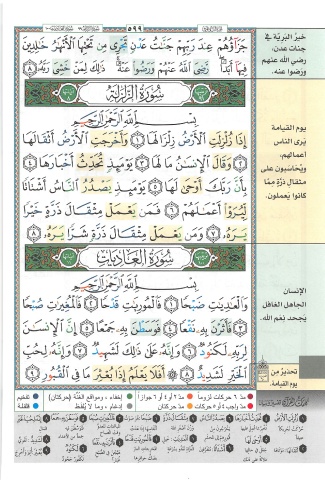 ٥٩٩
جَزَآؤُهُمْ عِندَ رَبِّهِمْ جَنَّٰتُ عَدْنٍ تَجْرِى مِن تَحْتِهَا ٱلْأَنْهَٰرُ خَٰلِدِينَ
فِيهَآ أَبَدًا ۖ رَّضِىَ ٱللَّهُ عَنْهُمْ وَرَضُوا۟ عَنْهُ ۚ ذَٰلِكَ لِمَنْ خَشِىَ رَبَّهُۥ ٨
سُورَةُ الزَّلْزَلَةِ
بِسْمِ ٱللَّهِ ٱلرَّحْمَٰنِ ٱلرَّحِيمِ
إِذَا زُلْزِلَتِ ٱلْأَرْضُ زِلْزَالَهَا ١ وَأَخْرَجَتِ ٱلْأَرْضُ أَثْقَالَهَا
٢ وَقَالَ ٱلْإِنسَٰنُ مَا لَهَا ٣ يَوْمَئِذٍ تُحَدِّثُ أَخْبَارَهَا ٤
بِأَنَّ رَبَّكَ أَوْحَىٰ لَهَا ٥ يَوْمَئِذٍ يَصْدُرُ ٱلنَّاسُ أَشْتَاتًا
لِّيُرَوْا۟ أَعْمَٰلَهُمْ ٦ فَمَن يَعْمَلْ مِثْقَالَ ذَرَّةٍ خَيْرًا
يَرَهُۥ ٧ وَمَن يَعْمَلْ مِثْقَالَ ذَرَّةٍ شَرًّا يَرَهُۥ ٨
سُورَةُ العَادِيَاتِ
بِسْمِ ٱللَّهِ ٱلرَّحْمَٰنِ ٱلرَّحِيمِ
وَٱلْعَٰدِيَٰتِ ضَبْحًا ١ فَٱلْمُورِيَٰتِ قَدْحًا ٢ فَٱلْمُغِيرَٰتِ صُبْحًا
٣ فَأَثَرْنَ بِهِۦ نَقْعًا ٤ فَوَسَطْنَ بِهِۦ جَمْعًا ٥ إِنَّ ٱلْإِنسَٰنَ
لِرَبِّهِۦ لَكَنُودٌ ٦ وَإِنَّهُۥ عَلَىٰ ذَٰلِكَ لَشَهِيدٌ ٧ وَإِنَّهُۥ لِحُبِّ
ٱلْخَيْرِ لَشَدِيدٌ ٨ أَفَلَا يَعْلَمُ إِذَا بُعْثِرَ مَا فِى ٱلْقُبُورِ ٩
خيرُ البَريّة في
جنات عدن،
رضي الله عنهم
ورضوا عنه.
يوم القيامة
يَرى الناس
أعمالهم،
ويُحاسبون على
مثقال ذرّة ممّا
كانوا يَعملون.
الإنسان
الجاهل الغافل
يجحد نِعَم الله.
تحذيرٌ من
يوم القيامة.
مدّ ٦ حركات لزوماً
مدّ ٢ أو ٤ أو ٦ جوازاً
إخفاء، ومواقع الغُنّة (حركتان)
تفخيم
مدّ واجب ٤ أو ٥ حركات
مدّ حركتان
إدغام، وما لا يُلفظ
قلقلة